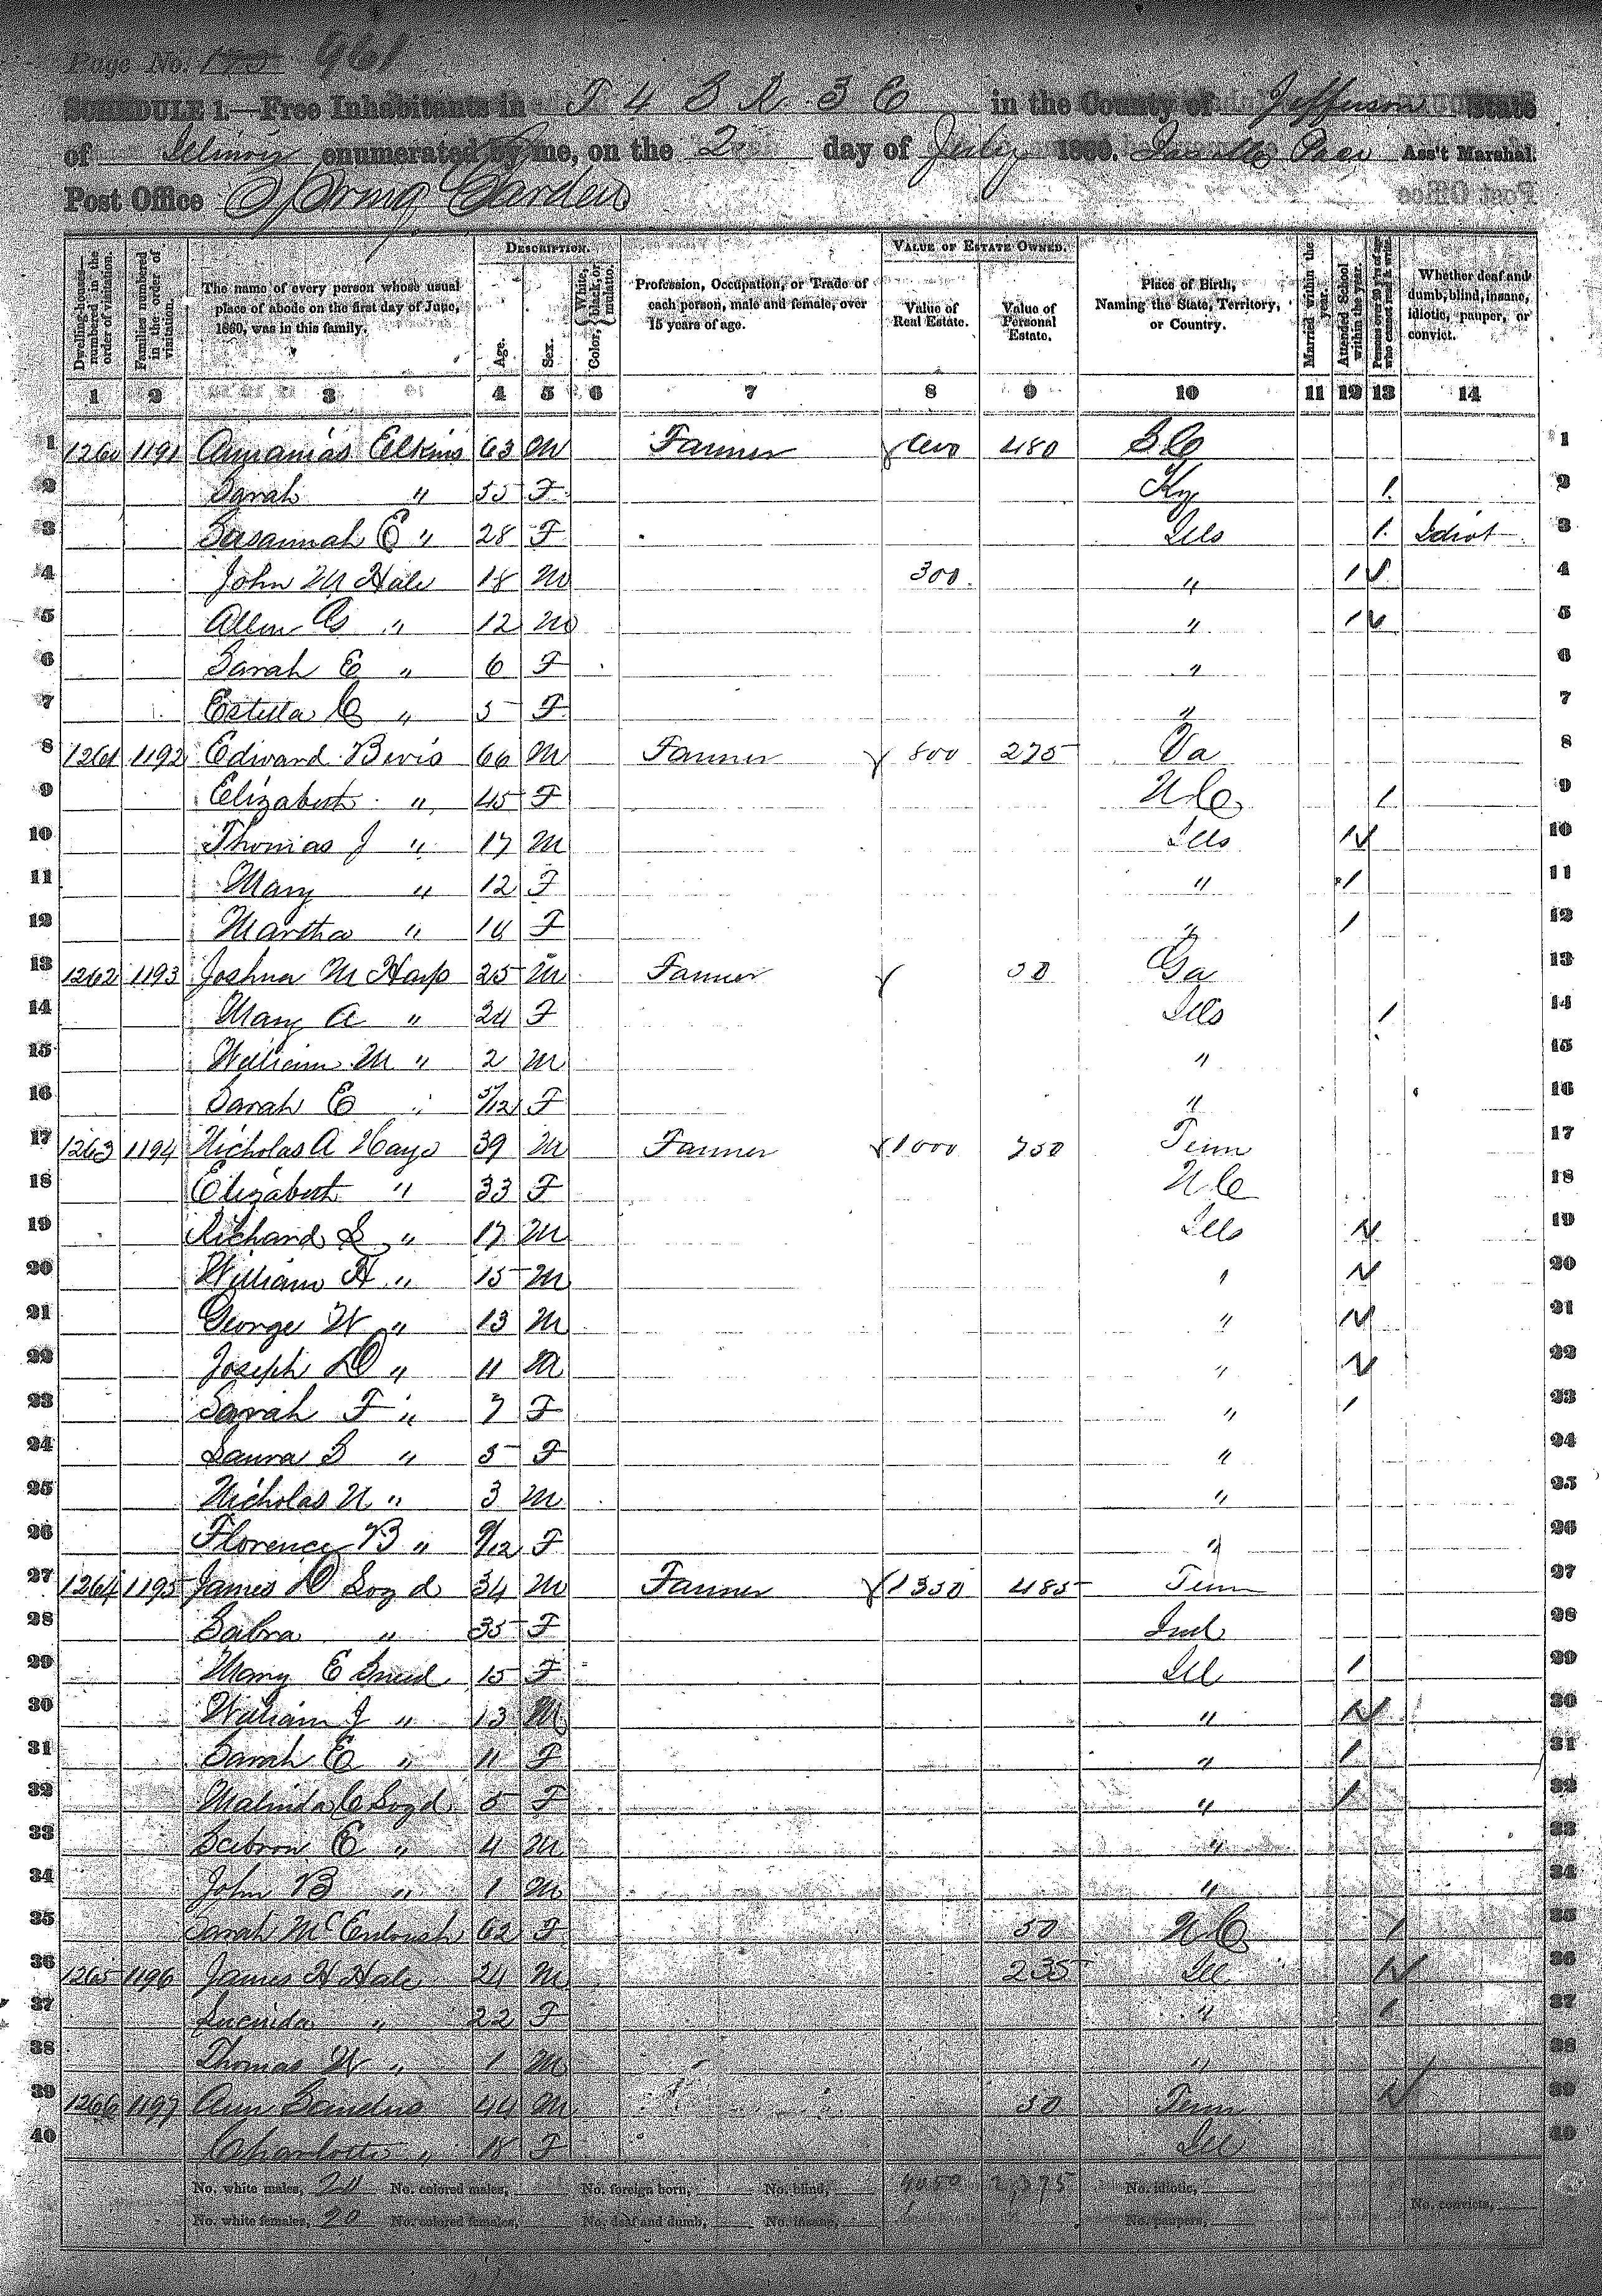 Page No. 175 961
SCHEDULE 1.—Free Inhabitants in T 4 S R 3 E in the County of Jefferson State
of Illinois enumerated by me, on the 2 day of July 1860. Pace Ass't Marshal.
Post Office Spring Garden
DESCRIPTION. VALUE OF ESTATE OWNED.
Dwelling-houses—numbered in the order of visitation. Families numbered in the order of visitation. The name of every person whose usual place of abode on the first day of June, 1860, was in this family. Age. Sex. Color, White, black, or mulatto. Profession, Occupation, or Trade of each person, male and female, over 15 years of age. Value of Real Estate. Value of Personal Estate. Place of Birth, Naming the State, Territory, or Country. Married within the year. Attended School within the year. Persons over 20 y'rs of age who cannot read & write. Whether deaf and dumb, blind, insane, idiotic, pauper, or convict.
1 2 3 4 5 6 7 8 9 10 11 12 13 14
1 1260 1191 Annanias Elkins 63 M Farmer 480 S C 1
2 Sarah " 55 F Ky 1 2
3 Susannah E " 28 F Ills 1 Idiot 3
4 John M Hale 18 M 300 " 1 4
5 Allen G " 12 M " 1 5
6 Sarah E " 6 F " 6
7 Estella C " 5 F " 7
8 1261 1192 Edward Bevis 66 M Farmer 800 275 Va 8
9 Elizabeth " 45 F N C 1 9
10 Thomas J " 17 M Ills 1 10
11 Mary " 12 F " 1 11
12 Martha " 10 F " 1 12
13 1262 1193 Joshua M Harp 25 M Farmer 50 Ga 13
14 Mary A " 24 F Ills 1 14
15 William M " 2 M " 15
16 Sarah E " 5/12 F " 16
17 1263 1194 Nicholas A Hays 39 M Farmer 1000 750 Tenn 17
18 Elizabeth " 33 F N C 18
19 Richard S " 17 M Ills 1 19
20 William H " 15 M " 1 20
21 George W " 13 M " 1 21
22 Joseph D " 11 M " 1 22
23 Sarah F " 7 F " 1 23
24 Laura S " 5 F " 24
25 Nicholas N " 3 M " 25
26 Florence B " 9/12 F " 26
27 1264 1195 James D Boyd 34 M Farmer 1350 485 Tenn 27
28 Sabra " 35 F Ind 28
29 Mary E Sneed 15 F Ill 1 29
30 William J " 13 M " 1 30
31 Sarah E " 11 F " 1 31
32 Malinda C Boyd 5 F " 1 32
33 E " 4 M " 33
34 John B " 1 M " 34
35 Sarah 62 F 50 N C 1 35
36 1265 1196 James H Hale 24 M 235 Ill 1 36
37 Lucinda " 22 F " 1 37
38 Thomas W " 1 M " 38
39 1266 1197 Sanders 44 M 50 Tenn 1 39
40 Charlotte " 18 F Ill 40
No. white males, 20 No. colored males, No. foreign born, No. blind, 4050 2,375 No. idiotic, No. convicts,
No. white females, 20 No. colored females, No. deaf and dumb, No. insane, No. paupers,